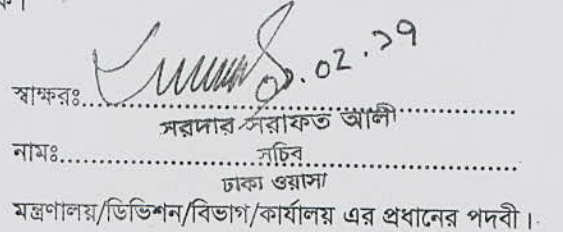 ০২.১৭
স্বাক্ষরঃ....................................................
সরদার সরাফত আলী
নামঃ....................সচিব....................
ঢাকা ওয়াসা
মন্ত্রণালয়/ডিভিশন/বিভাগ/কার্যালয় এর প্রধানের পদবী।